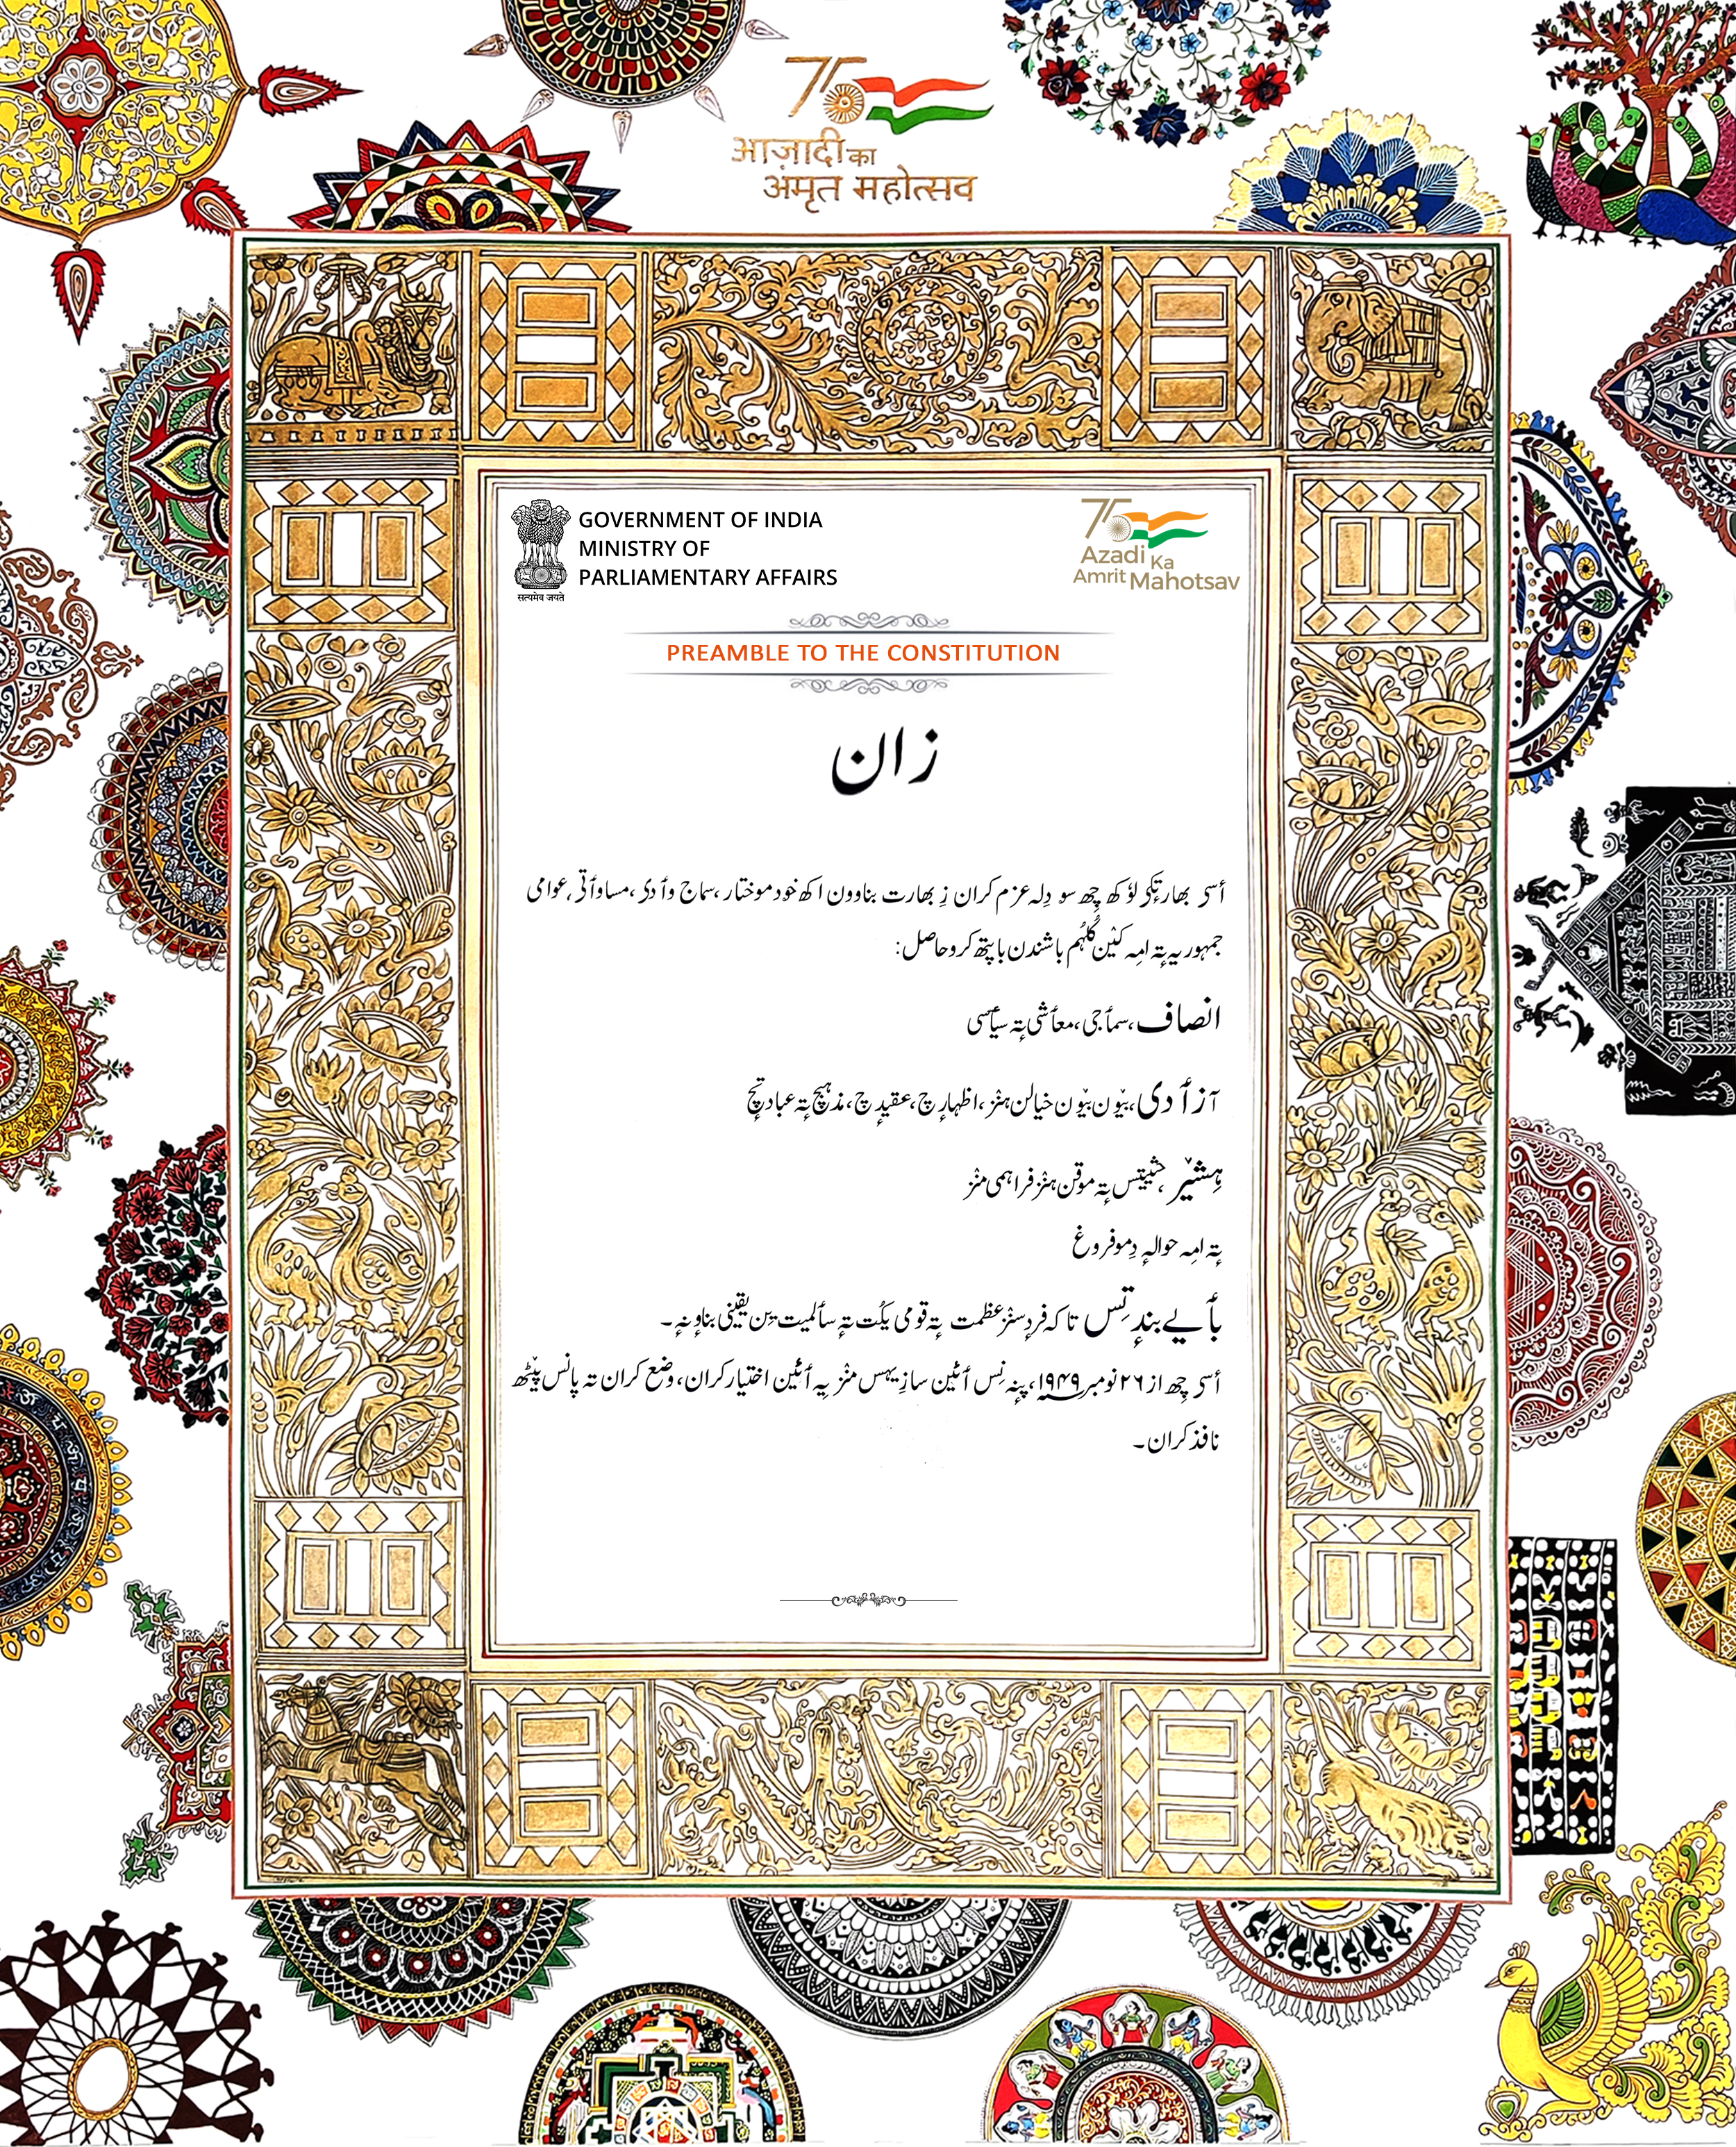 आज़ादी का
अमृत महोत्सव
GOVERNMENT OF INDIA
MINISTRY OF
PARLIAMENTARY AFFAIRS
सत्यमेव जयते
75
Azadi Ka
Amrit Mahotsav
PREAMBLE TO THE CONSTITUTION
زان
أسۍ بھارتٕکۍ لۆکھ چھِ سو دِلہ عزم کران زِ بھارت بناوون اکھ خود موختار، سماج وٲدی، مساوٲتی، عوامی
جمہوریہ تہٕ امہِ کٮ۪ن کُلہُم باشندن باپتھ کرو حاصل:
انصاف، سمٲجی، معٲشی تہٕ سیٲسی
آزٲدی، بیٛون بیٛون خیالن ہنٛز، اظہارٕچ، عقیدٕچ، مذہبٕچ تہٕ عبادتٕچ
ہِشیٚر، حثیتس تہٕ موقن ہنٛز فراہمی منٛز
تہٕ امہِ حوالہٕ دِمو فروغ
بٲے بندٕتس تاکہ فردٕسنٛز عظمت تہٕ قومی یکُت تہٕ سٲلمیت یِن یقینی بناونہٕ۔
أسۍ چھِ از ۲۶ نومبر ۱۹۴۹، پنہٕ نِس أئین سازِیہس منٛز یہِ أئین اختیار کران، وضع کران تہ پانس پؠٹھ
نافذ کران۔